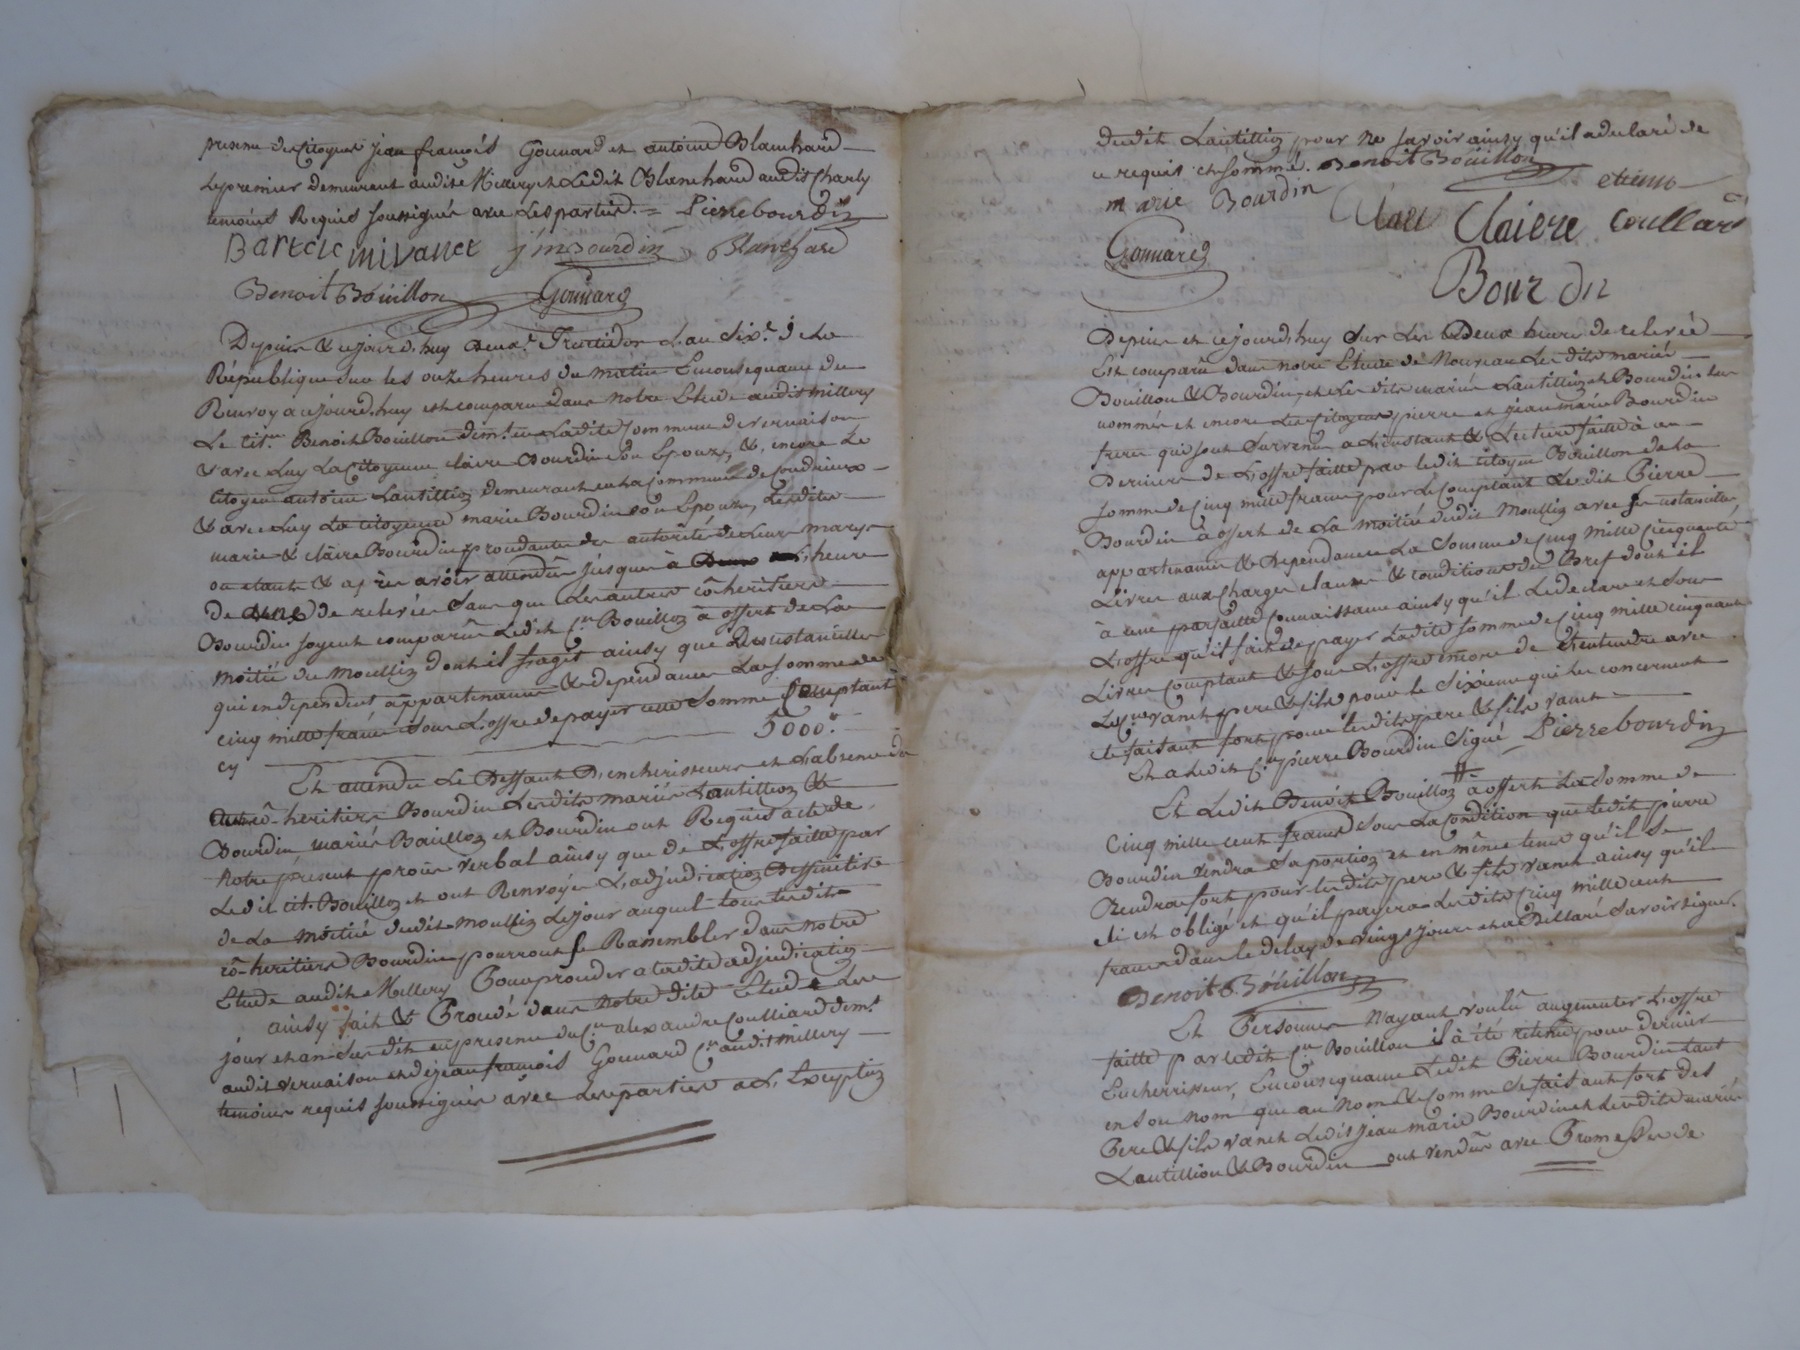 presence des Citoyens jean françois Gouvard et antoine Blanchard
Le premier demeurant audit Millery et Ledit Blanchard audit Charly
temoins Requis soussignés avec Les parties. = Pierre bourdin
Bartelemi vanet j m Bourdin Blanchard
Benoit Bouillon Gouvard
Depuis & cejourd'huy deux.e Fructidor L'an Six.e de La
République sur les onze heures du matin En consequance du
Renvoy a cejourd'huy est comparu dans notre Etude audit Millery
Le cit.en Benoit Bouillon dem.t en Ladite Commune de vernaison
& avec Luy La Citoyenne claire Bourdin son Epouze, &, encore Le
Citoyen antoine Lantillion demeurant en La commune de
& avec Luy La citoyenne marie Bourdin son Epouze, Lesdites
marie & claire Bourdin procedantes de autorité de Leurs marys
ou etants & après avoir attendû jusques à heure
de une de relevée sans que Les autres cô-heritiers
Bourdin soyent comparûs Ledit C.en Bouillon à offert de La
moitié du Moullin dont il s'agit ainsy que Des ustancilles
qui en dependent appartenances & dependances La somme de
cinq mille francs sous L'offre de payer cette somme Comptant
cy 5000.tt
Et attendu Le Deffaut D'encherisseurs et L'absence du
cô-heritiers Bourdin Lesdits mariés Lantillion &
Bourdin mariés Bouillon et Bourdin ont Requis acte de
Notre présent procès verbal ainsy que de L'offre faitte par
Ledit cit. Bouillon et ont Renvoyés L'adjudication Deffinitive
de La moitié dudit moullin Le jour auquel tous Lesdits
cô-heritiers Bourdin pourront se Rassembler dans notre
Etude audit Millery Pour proceder a Ladite adjudication
ainsy fait & Procedé dans notre dite Etude Les
jour et an Susdits en presence du C.en alexandre Coulliard dem.t
audit vernaison et de jean françois Gouvard C.en audit millery
temoins requis soussignés avec Les parties a L'Exception
dudit Lantillion pour Ne Savoir ainsy qu'il a declaré de
ce requis et sommé. Benoit Bouillon
marie Bourdin Claiere Coullard
Gouvard
Bourdin
Depuis et cejourd'huy Sur Les Deux heures de relevée
Est comparû dans notre Etude de Nouveau Lesdits mariés
Bouillon & Bourdin, et Lesdits mariés Lantillion et Bourdin sus
nommés et encore Les Citoyens pierre et jean marie Bourdin
freres qui sont Survenus a L'instant & Lecture faitte à ce
Derniers de L'offre faitte par ledit Citoyen Bouillon de La
somme de Cinq mille francs pour Le Comptant Ledit Pierre
Bourdin à offert de La moitié dudit Moullin avec Ses ustancilles
appartenances & Dependances La Somme de Cinq mille Cinquante
Livres aux Charges clauses & conditions du Bref dont il
à une parfaitte connaissance ainsy qu'il Le declare et Sous
L'offre qu'il fait de payer Ladite Somme de Cinq mille cinquante
Livres Comptant & Sous L'offre encore de s'entendre avec
Les C.ens vanet pere & fils pour le Sixieme qui les concernent
et faisant fort pour Lesdits pere & fils vanet
Et a Ledit C.en pierre Bourdin Signé Pierre bourdin
Et Ledit Benoit Bouillon à offert La Somme de
Cinq mille cent francs Sous La Condition que Ledit pierre
Bourdin vendra Sa portion et en même tems qu'il Se
Rendra fort pour Lesdits pere & fils vanet ainsy qu'il
s'i est obligé et qu'il payera Lesdits Cinq mille cent
francs dans le delay de vingt jours et a Declaré Savoir Signer.
Benoit Bouillon
Et Personnes N'ayant voulû augmenter L'offre
faitte par Ledit C.en Bouillon il à été retenu pour dernier
Encherisseur, En consequance Ledit Pierre Bourdin tant
en Son Nom que au Nom & comme Se faisant fort des
Pere & fils vanet Ledit jean marie Bourdin et Lesdits mariés
Lantillion & Bourdin ont vendûs avec Promesses de